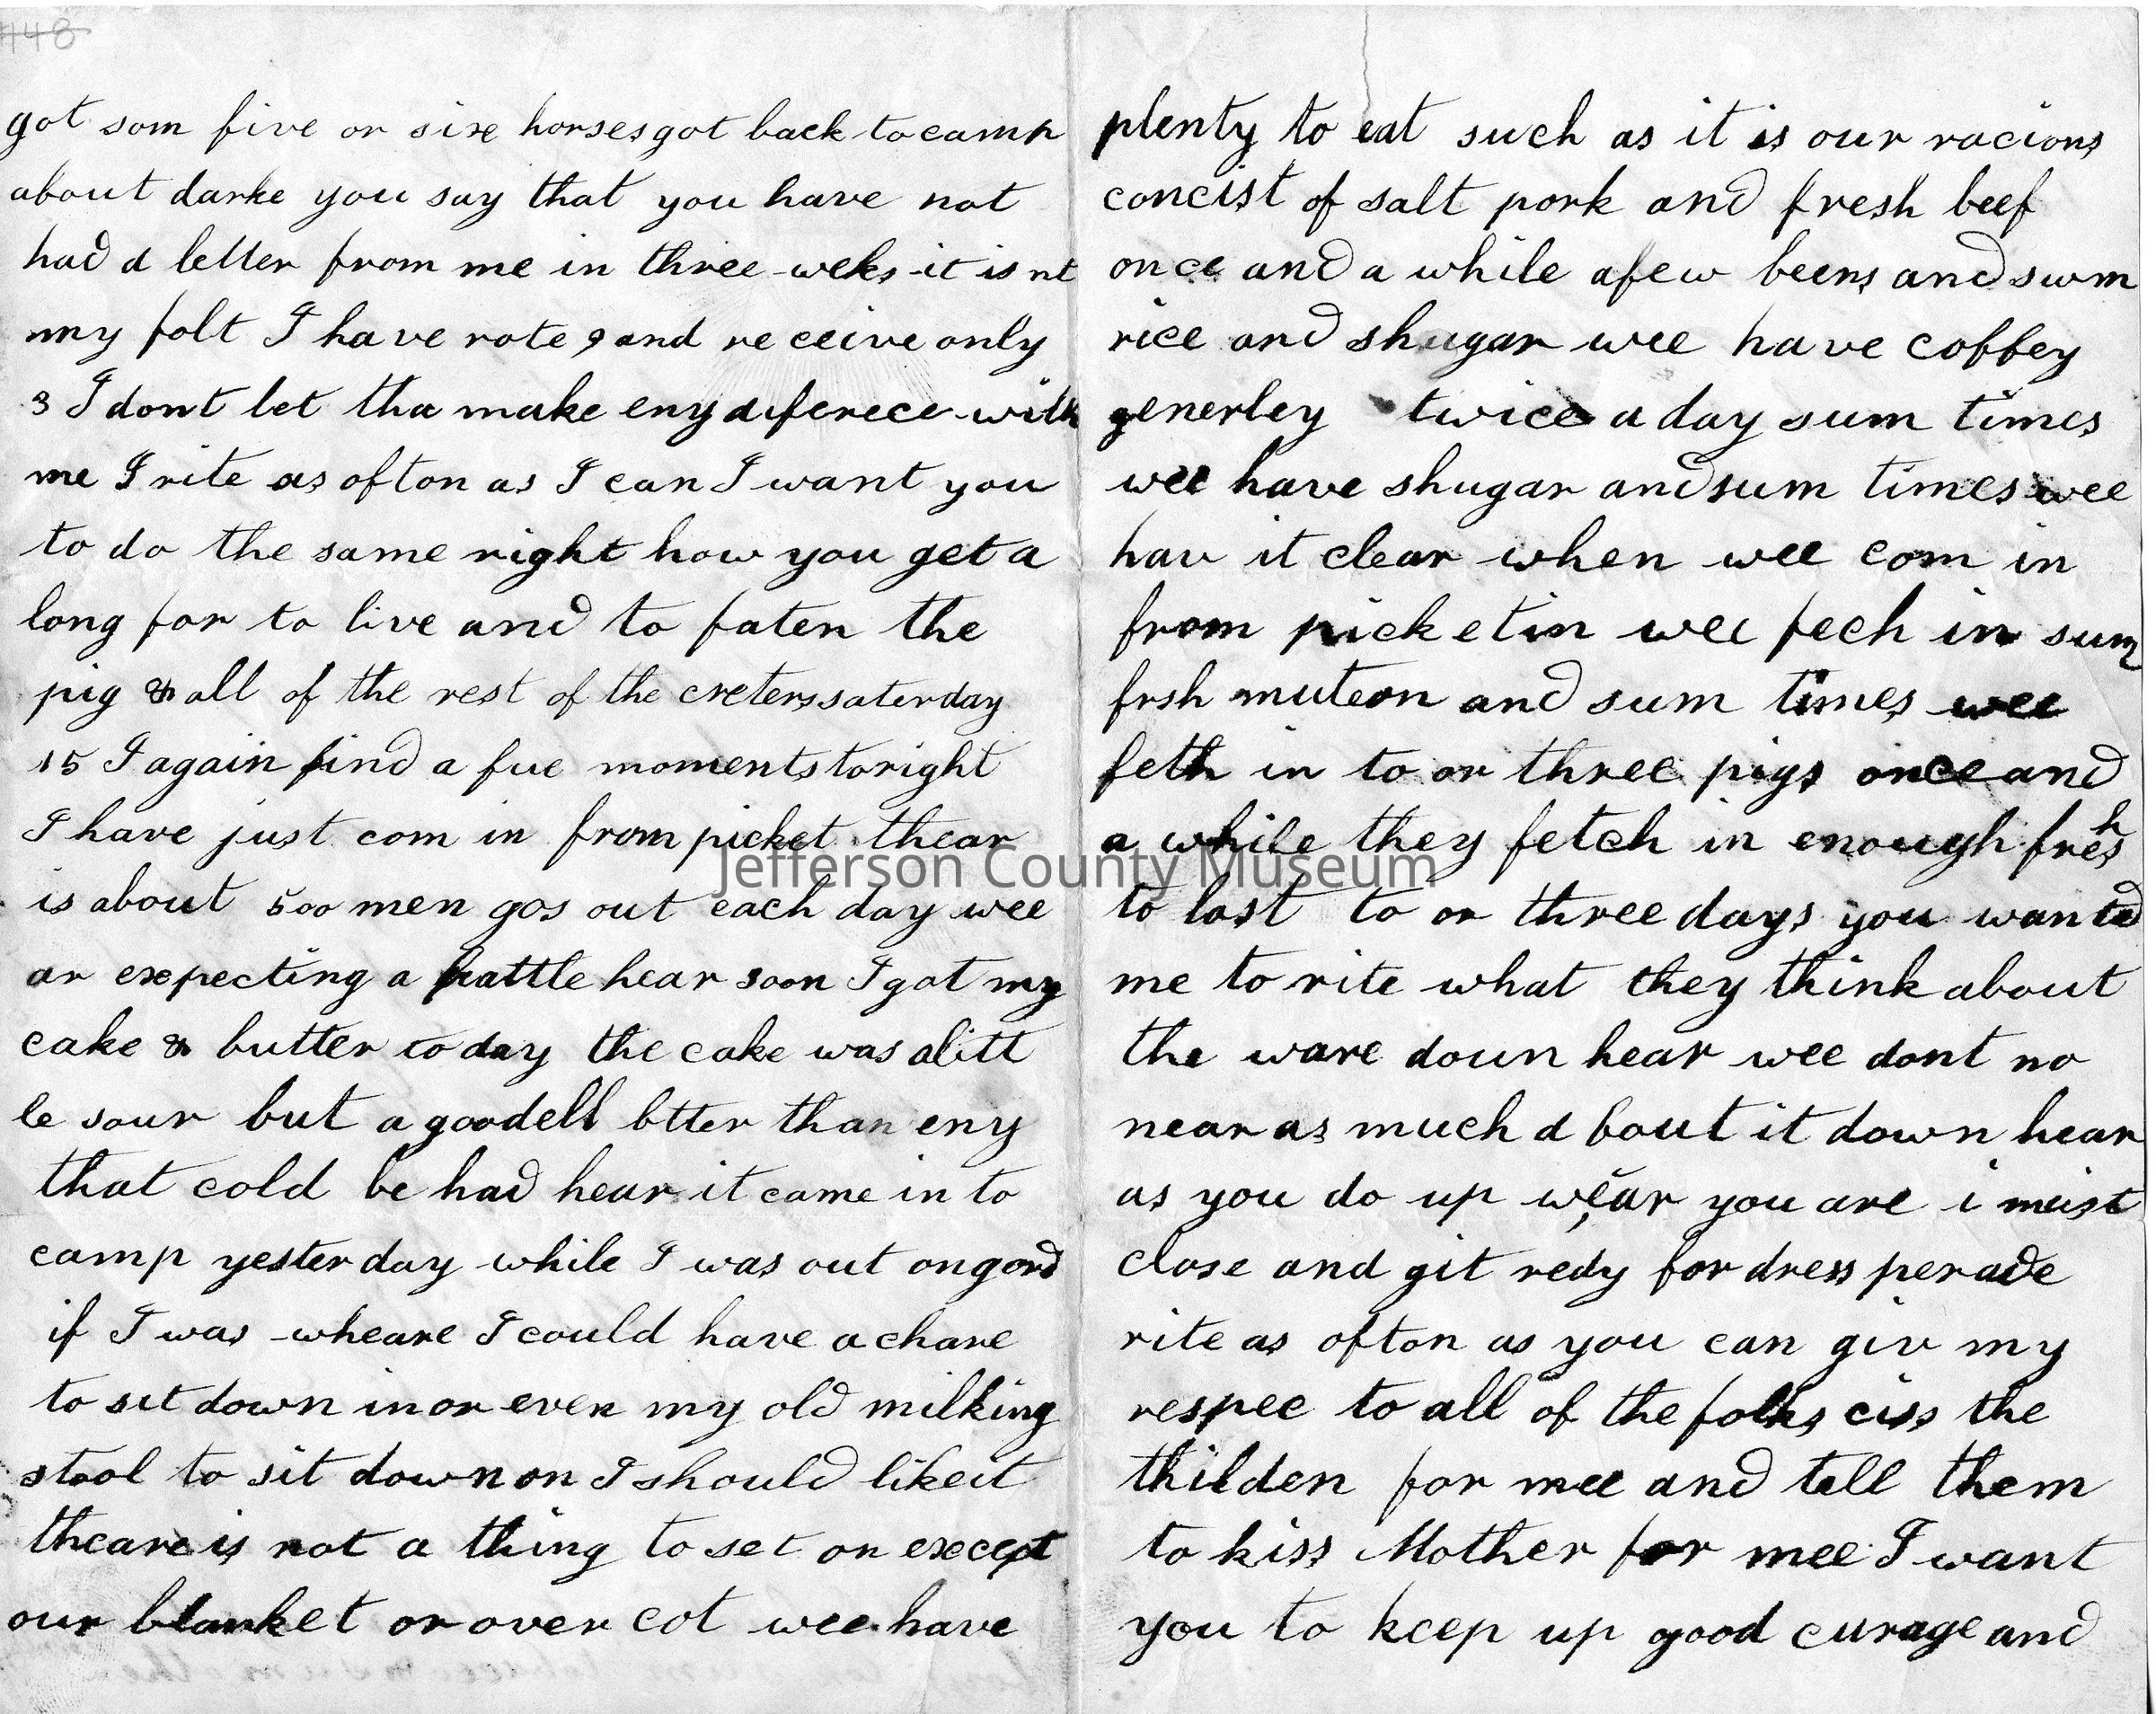 448
got som five or sixe horses got back to camp
about darke you say that you have not
had a letter from me in three weeks it is nt
my folt I have rote 9 and receive only
3 I dont let tha make eny diferece with
me I rite as ofton as I can I want you
to do the same right how you get a
long for to live and to faten the
pig & all of the rest of the creters saterday
15 I again find a fue moments to right
I have just com in from picket thear
is about 500 men gos out each day wee
ar expecting a battle hear soon I got my
cake & butter to day the cake was a litt
le sour but a goodell btter than eny
that cold be had hear it came in to
camp yesterday while I was out on gord
if I was wheare I could have a chare
to set down in or even my old milking
stool to sit down on I should like it
theare is not a thing to set on except
our blanket or over cot wee have
plenty to eat such as it is our racions
concist of salt pork and fresh beef
once and a while a few beens and sum
rice and shugar wee have coffey
generley twice a day sum times
wee have shugar and sum times wee
hav it clear when wee com in
from picketin wee fech in sum
frsh muteon and sum times wee
feth in to or three pigs once and
a while they fetch in enough fresh
to last to or three days you wanted
me to rite what they think about
the ware doun hear wee dont no
near as much a bout it down hear
as you do up wear you are i must
close and git redy for dress perade
rite as ofton as you can giv my
respec to all of the folks ciss the
thilden for mee and tell them
to kiss Mother for mee I want
you to keep up good curage and
Jefferson County Museum